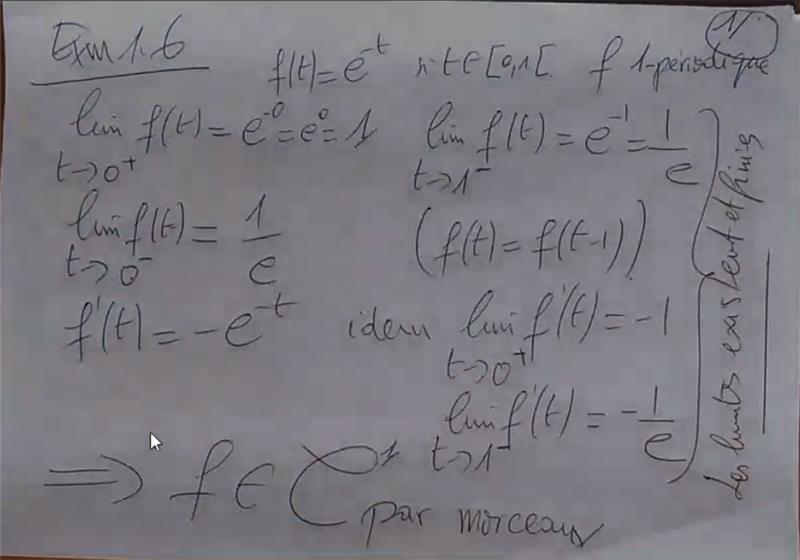 Exm 1.6
1/.
f(t) = e^{-t} si t ∈ [0,1[ f 1-périodique
lim_{t→0^+} f(t) = e^{-0} = e^0 = 1 lim_{t→1^-} f(t) = e^{-1} = 1/e
lim_{t→0^-} f(t) = 1/e (f(t) = f(t-1))
f'(t) = -e^{-t} idem lim_{t→0^+} f'(t) = -1
lim_{t→1^-} f'(t) = -1/e
Les limites existent et finis
⟹ f ∈ C^1 par morceaux